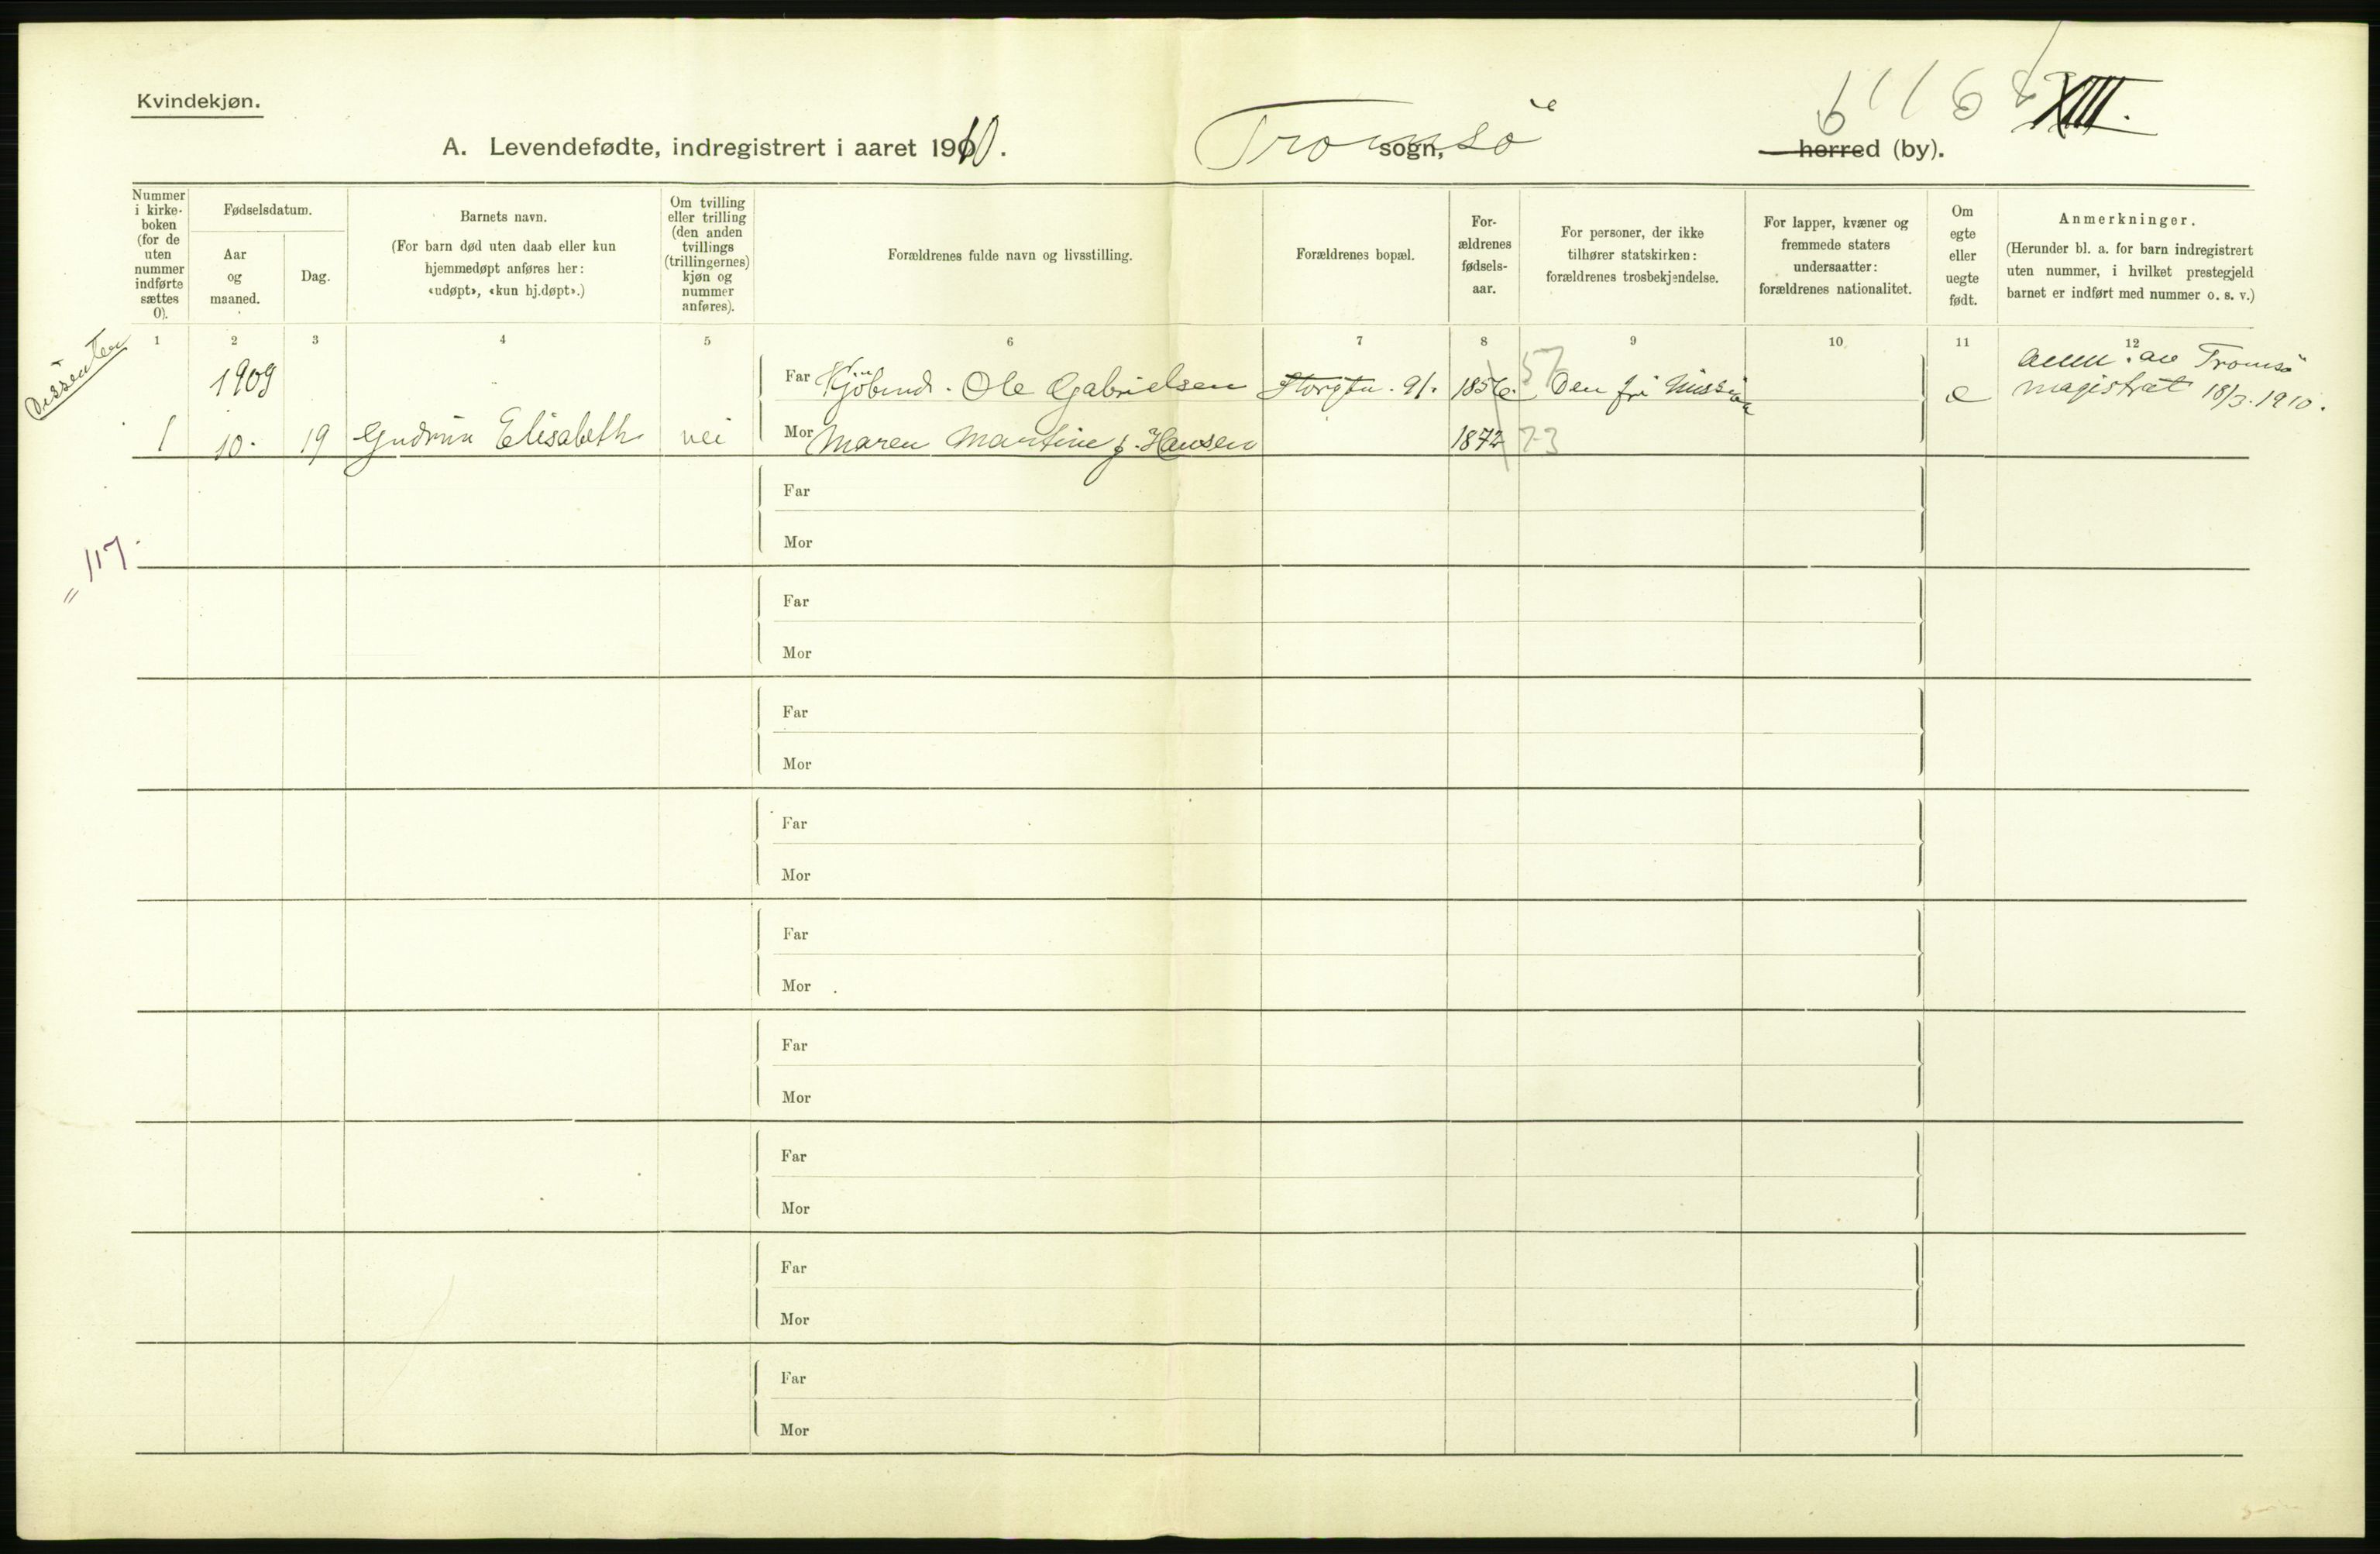 Kvindekjøn.
6 1 1 6 2 XIII.
A. Levendefødte, indregistrert i aaret 1910. Tromsö sogn, herred (by).
Nummer i kirke-boken (for de uten nummer indførte sættes 0).
Fødselsdatum.
Aar og maaned.
Dag.
Barnets navn.
(For barn død uten daab eller kun
hjemmedøpt anføres her:
«udøpt», «kun hj.døpt».)
Om tvilling
eller trilling
(den anden
tvillings
(trillingernes)
kjøn og
nummer
anføres).
Forældrenes fulde navn og livsstilling.
Forældrenes bopæl.
For-
ældrenes
fødsels-
aar.
For personer, der ikke
tilhører statskirken:
forældrenes trosbekjendelse.
For lapper, kvæner og
fremmede staters
undersaatter:
forældrenes nationalitet.
Om
egte
eller
uegte
født.
Anmerkninger.
(Herunder bl. a. for barn indregistrert
uten nummer, i hvilket prestegjeld
barnet er indført med nummer o. s. v.)
1 2 3 4 5 6 7 8 9 10 11 12
Dissenter
1909 Far Kjöbmd. Ole Gabrielsen Storgtn. 91. 1856. 57 Den fri Mission e anm. av Tromsö
magistrat 18/3. 1910.
1 10. 19 Gudrun Elisabeth nei Mor Maren Martine f. Hansen 1872 73
Far
Mor
= 117.
Far
Mor
Far
Mor
Far
Mor
Far
Mor
Far
Mor
Far
Mor
Far
Mor
Far
Mor